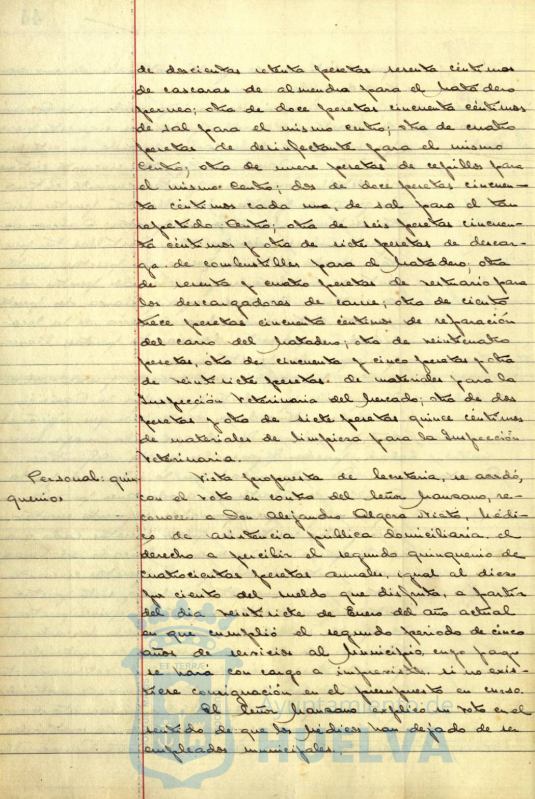 de doscientas setenta pesetas sesenta céntimos
de cascaras de almendra para el Matadero
porcuno; otra de doce pesetas cincuenta céntimos
de sal para el mismo Centro; otra de cuatro
pesetas de desinfectante para el mismo
Centro; otra de nueve pesetas de cepillos para
el mismo Centro; dos de doce pesetas cincuen-
ta céntimos cada una, de sal para el tan
repetido Centro; otra de seis pesetas cincuen-
ta céntimos y otra de siete pesetas de descar-
ga de combustibles para el Matadero; otra
de sesenta y cuatro pesetas de vestuario para
los descargadores de carne; otra de ciento
trece pesetas cincuenta céntimos de reparación
del carro del Matadero; otra de veinticuatro
pesetas, otra de cincuenta y cinco pesetas y otra
de veintisiete pesetas de materiales para la
Inspección Veterinaria del Mercado; otra de dos
pesetas y otra de siete pesetas quince céntimos
de materiales de limpieza para la Inspección
Veterinaria.
Personal: quin-
quenios
Vista propuesta de Secretaria, se acordó,
con el voto en contra del Señor Manzano, re-
conocer a Don Alejandro Algora Nieto, Médi-
co de asistencia pública domiciliaria, el
derecho a percibir el segundo quinquenio de
cuatrocientas pesetas anuales, igual al diez
por ciento del sueldo que disfruta, a partir
del dia veintisiete de Enero del año actual
en que cumplió el segundo periodo de cinco
años de servicios al Municipio, cuyo pago
se hará con cargo a imprevistos, si no exis-
tiese consignación en el presupuesto en curso.
El Señor Manzano explicó su voto en el
sentido de que los Médicos han dejado de ser
empleados municipales.
HUELVA